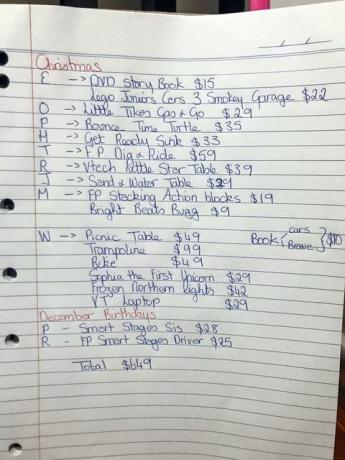 Christmas
E -> DVD Story Book $15
Lego Juniors Cars 3 Smokey Garage $22
O -> Little Tikes Gas & Go $29
P -> Bounce Time Turtle $35
H -> Get Ready Sink $33
T -> FP Dig & Ride $59
R -> Vtech Kittle Star Table $39
J -> Sand & Water Table $29
M -> FP Stacking Action blocks $19
Bright Beats Bugg $9
W -> Picnic Table $49 Book { cars } $10
Trampoline $99
Bike $49
Sophia the First Unicorn $29
Frozen Northern Lights $42
VT Laptop $29
December Birthdays
P - Smart Stages Sis $28
R - FP Smart Stages Driver $25
Total $649